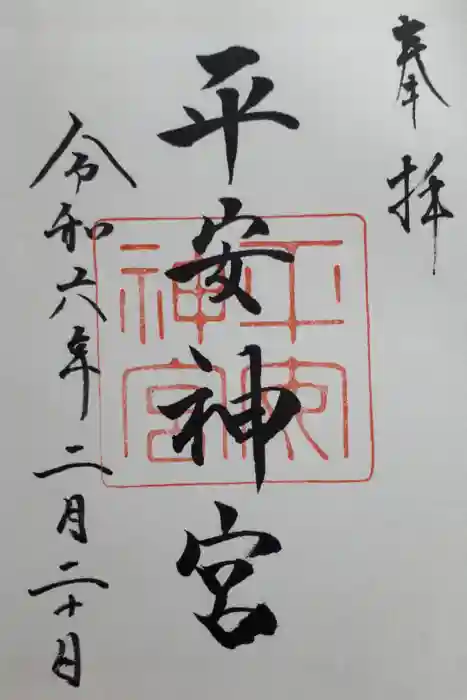 奉拝
平安神宮
令和六年二月二十日
平安神宮